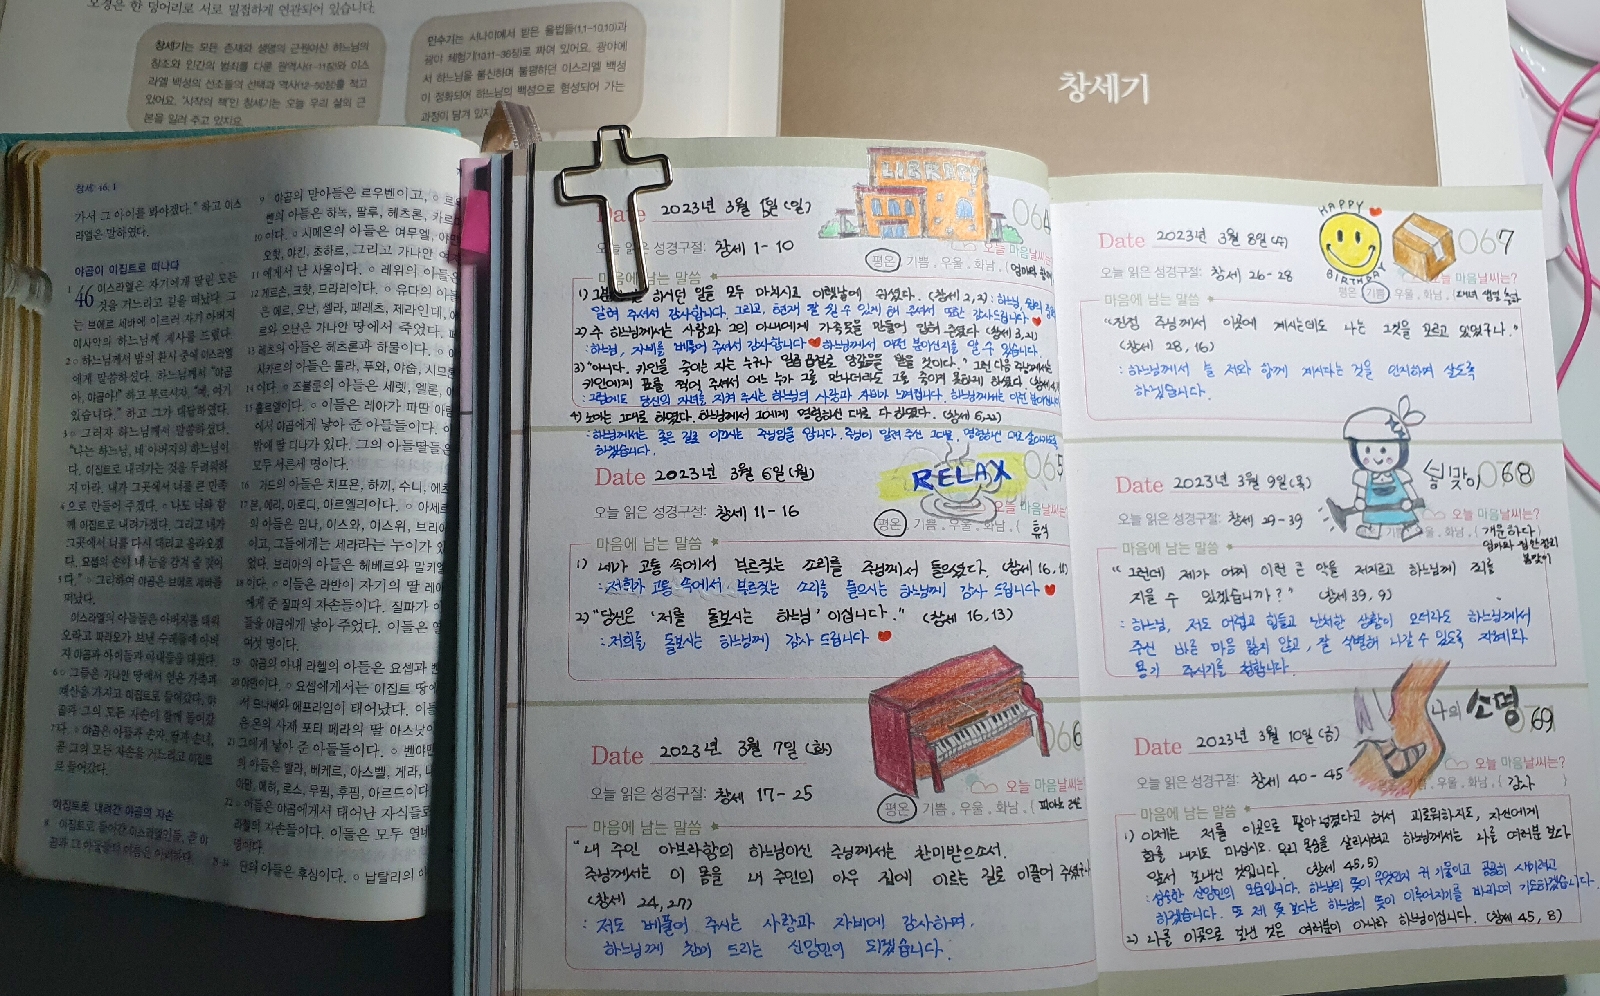 오경은 한 덩어리로 서로 밀접하게 연관되어 있습니다.
창세기는 모든 존재와 생명의 근원이신 하느님의
창조와 인간의 범죄를 다룬 원역사(1-11장)와 이스
라엘 백성의 선조들의 선택과 역사(12-50장)를 적고
있어요. '시작의 책'인 창세기는 오늘 우리 삶의 근
본을 일러 주고 있지요.
민수기는 시나이에서 받은 율법들(1,1-10,10)과
광야 체험기(10,11-36장)로 짜여 있어요. 광야에
서 하느님을 불신하며 불평하던 이스라엘 백성
이 정화되어 하느님의 백성으로 형성되어 가는
과정이 담겨 있지
창세기
창세 46,1
가서 그 아이를 봐야겠다." 하고 이스
라엘은 말하였다.
야곱이 이집트로 떠나다
46 1 이스라엘은 자기에게 딸린 모든
것을 거느리고 길을 떠났다. 그
는 브에르 세바에 이르러 자기 아버지
이사악의 하느님께 제사를 드렸다.
2 하느님께서 밤의 환시 중에 이스라엘
에게 말씀하셨다. 하느님께서 "야곱
아, 야곱아!" 하고 부르시자, "예, 여기
있습니다." 하고 그가 대답하였다.
3 그러자 하느님께서 말씀하셨다.
"나는 하느님, 네 아버지의 하느님이
다. 이집트로 내려가는 것을 두려워하
지 마라. 내가 그곳에서 너를 큰 민족
으로 만들어 주겠다. 나도 너와 함
께 이집트로 내려가겠다. 그리고 내가
그곳에서 너를 다시 데리고 올라오겠
다. 요셉의 손이 네 눈을 감겨 줄 것이
다." 그리하여 야곱은 브에르 세바를
떠났다.
이스라엘의 아들들은 아버지를 태워
오라고 파라오가 보낸 수레들에 아버
지 야곱과 아이들과 아내들을 태웠다.
6 그들은 가나안 땅에서 얻은 가축과
재산을 가지고 이집트로 들어갔다. 야
곱과 그의 모든 자손이 함께 들어갔
다. 야곱은 아들과 손자, 딸과 손녀,
곧 그의 모든 자손을 거느리고 이집트
로 들어갔다.
이집트로 내려간 야곱의 자손
8 이집트로 들어간 이스라엘인들, 곧 야
곱과 그 아들들의 이름은 이러하다.
9 야곱의 맏아들은 르우벤이고,
벤의 아들은 하녹, 팔루, 헤츠론, 카르
10 이다. 시메온의 아들은 여무엘, 야민
오핫, 야킨, 초하르, 그리고 가나안
11 에게서 난 사울이다. 레위의 아들은
12 게르손, 크핫, 므라리이다. 유다의
은 에르, 오난, 셀라, 페레츠, 제라인데,
르와 오난은 가나안 땅에서 죽었다.
헤츠의 아들은 헤츠론과 하물이다.
사카르의 아들은 톨라, 푸와, 야숩, 시므
14 이다. 즈불룬의 아들은 세렛, 엘론,
15 흘르엘이다. 이들은 레아가 파딴 아람
에서 야곱에게 낳아 준 아들들이다.
밖에 딸 디나가 있다. 그의 아들딸들은
모두 서른세 명이다.
16 가드의 아들은 치프욘, 하끼, 수니,
17 본, 에리, 아로디, 아르엘리이다. 아세르
의 아들은 임나, 이스와, 이스위, 브리아
이고, 그들에게는 세라라는 누이가 있
었다. 브리아의 아들은 헤베르와 말키엘
18 이다. 이들은 라반이 자기의 딸 레아
에게 준 질파의 자손들이다. 질파가
들을 야곱에게 낳아 주었다. 이들은
여섯 명이다.
19 야곱의 아내 라헬의 아들은 요셉과
20 야민이다. 요셉에게서는 이집트 땅에
서 므나쎄와 에프라임이 태어났다.
은 온의 사제 포티 페라의 딸 아스낫이
21 그에게 낳아 준 아들들이다. 벤야민
의 아들은 벨라, 베케르, 아스벨, 게라,
아만, 에히, 로스, 무핌, 후핌, 아르드이다.
22 이들은 야곱에게서 태어난 자식들로
라헬의 자손들이다. 이들은 모두 열네
명이다.
23 24 단의 아들은 후심이다. 납탈리의
LIBRARY
Date 2023년 3월 5일(일)
064
오늘 읽은 성경구절: 창세 1-10
오늘 마음날씨는?
평온 기쁨, 우울, 화남, ( 엄마와
마음에 남는 말씀
1) 하시던 일을 모두 마치시고 이렛날에 쉬셨다. (창세 2,2) : 하느님, 쉼의
알려 주셔서 감사합니다. 그리고, 현재 잘 쉴 수 있게 해 주셔서 또한 감사드립니다 ♥
2) 주 하느님께서는 사람과 그의 아내에게 가죽옷을 만들어 입혀 주셨다. (창세 3,21)
: 하느님, 자비를 베풀어 주셔서 감사합니다 ♥ 하느님께서 어떤 분이신지를 알 수 있습니다.
3) "아니다. 카인을 죽이는 자는 누구나 일곱 곱절로 앙갚음을 받을 것이다." 그런 다음 주님께서는
카인에게 표를 찍어 주셔서 어느 누가 그를 만나더라도 그를 죽이지 못하게 하셨다. (창세
: 그럼에도 당신의 자녀를 지켜 주시는 하느님의 사랑과 자비가 느껴집니다. 하느님께서는 이런 분이십니다
4) 노아는 그대로 하였다. 하느님께서 그에게 명령하신 대로 다 하였다. (창세 6,22)
: 하느님께서는 좋은 길로 이끄시는 주님임을 압니다. 주님이 알려 주신 그대로, 명령하신 대로 살아가도록
하겠습니다.
Date 2023년 3월 6일(월)
RELAX
065
오늘 읽은 성경구절: 창세 11-16
오늘 마음날씨는?
평온 기쁨, 우울, 화남, ( 휴식
마음에 남는 말씀
1) 네가 고통 속에서 부르짖는 소리를 주님께서 들으셨다. (창세 16,11)
: 저희가 고통 속에서 부르짖는 소리를 들으시는 하느님께 감사 드립니다 ♥
2) "당신은 '저를 돌보시는 하느님'이십니다." (창세 16,13)
: 저희를 돌보시는 하느님께 감사 드립니다 ♥
Date 2023년 3월 7일 (화)
066
오늘 읽은 성경구절: 창세 17-25
오늘 마음날씨는?
평온 기쁨, 우울, 화남, ( 피아노
마음에 남는 말씀
"내 주인 아브라함의 하느님이신 주님께서는 찬미받으소서.
주님께서는 이 몸을 내 주인의 아우 집에 이르는 길로 이끌어 주셨
(창세 24,27)
: 저도 베풀어 주시는 사랑과 자비에 감사하며,
하느님께 찬미 드리는 신앙인이 되겠습니다.
Date 2023년 3월 8일(수)
HAPPY
BIRTHDAY
067
오늘 읽은 성경구절: 창세 26-28
오늘 마음날씨는?
평온 기쁨, 우울, 화남, ( 대녀 생일 축하
마음에 남는 말씀
"진정 주님께서 이곳에 계시는데도 나는 그것을 모르고 있었구나."
(창세 28,16)
: 하느님께서 늘 저와 함께 계시다는 것을 인지하며 살도록
하겠습니다.
Date 2023년 3월 9일(목)
봄맞이
068
오늘 읽은 성경구절: 창세 29-39
오늘 마음날씨는?
기쁨, 우울, 화남, ( 개운하다 )
엄마와 집안정리
봄맞이
마음에 남는 말씀
"그런데 제가 어찌 이런 큰 악을 저지르고 하느님께 죄를
지을 수 있겠습니까?" (창세 39,9)
: 하느님, 저도 어렵고 힘들고 난처한 상황이 오더라도 하느님께서
주신 바른 마음 잃지 않고, 잘 식별해 나갈 수 있도록 지혜와
용기 주시기를 청합니다.
Date 2023년 3월 10일(금)
나의 소명
69
오늘 읽은 성경구절: 창세 40-45
오늘 마음날씨는?
우울, 화남, ( 감사 )
마음에 남는 말씀
1) 이제는 저를 이곳으로 팔아 넘겼다고 해서 괴로워하지도, 자신에게
화를 내지도 마십시오. 우리 목숨을 살리시려고 하느님께서는 나를 여러분보다
앞서 보내신 것입니다. (창세 45,5)
: 성숙한 신앙인의 모습입니다. 하느님의 뜻이 무엇인지 귀 기울이고 곰곰히 새기려고
하겠습니다. 또 제 뜻 보다는 하느님의 뜻이 이루어지기를 바라며 기도하겠습니다.
2) 나를 이곳으로 보낸 것은 여러분이 아니라 하느님이십니다. (창세 45,8)